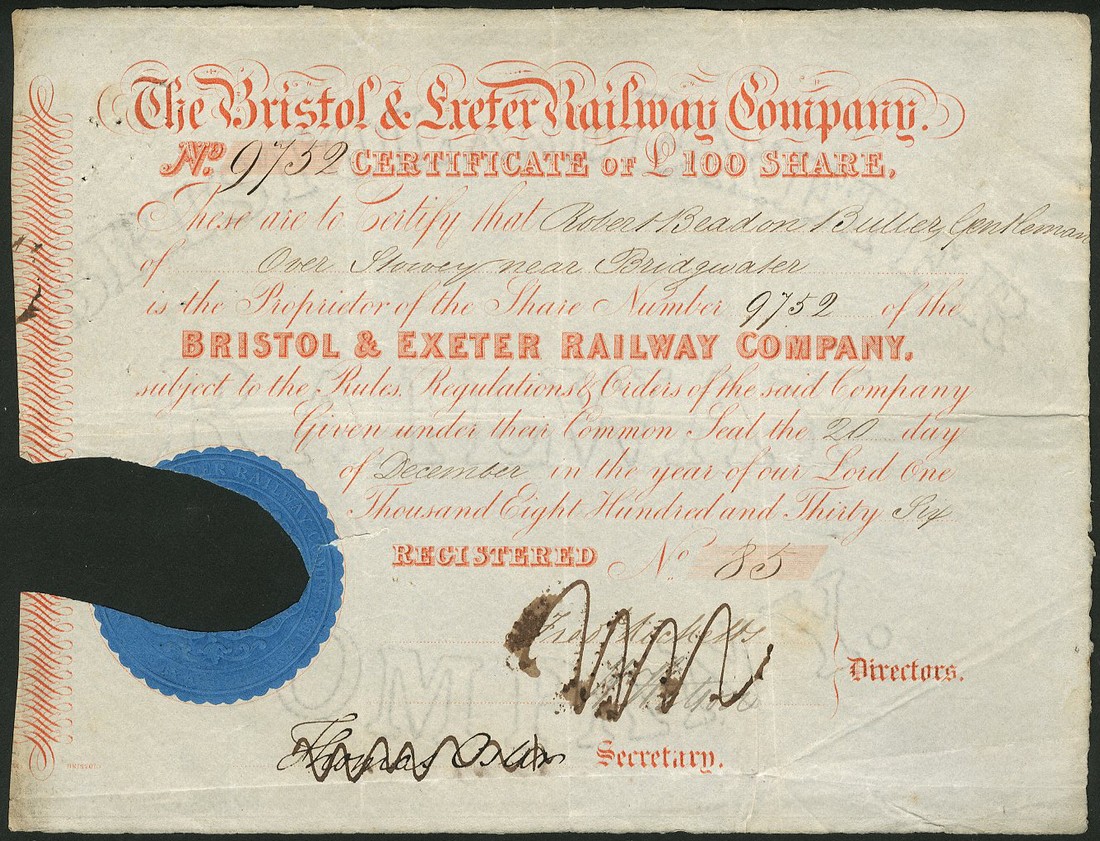 The Bristol & Exeter Railway Company.
No. 9752 CERTIFICATE OF £100 SHARE.
These are to Certify that Robert Beadon Buller, Gentleman
of Over Stowey near Bridgwater
is the Proprietor of the Share Number 9752 of the
BRISTOL & EXETER RAILWAY COMPANY,
subject to the Rules, Regulations & Orders of the said Company
Given under their Common Seal the 20 day
of December in the year of our Lord One
Thousand Eight Hundred and Thirty Six
REGISTERED No. 85
EXETER RAILWAY
Directors.
Thomas Osler Secretary.